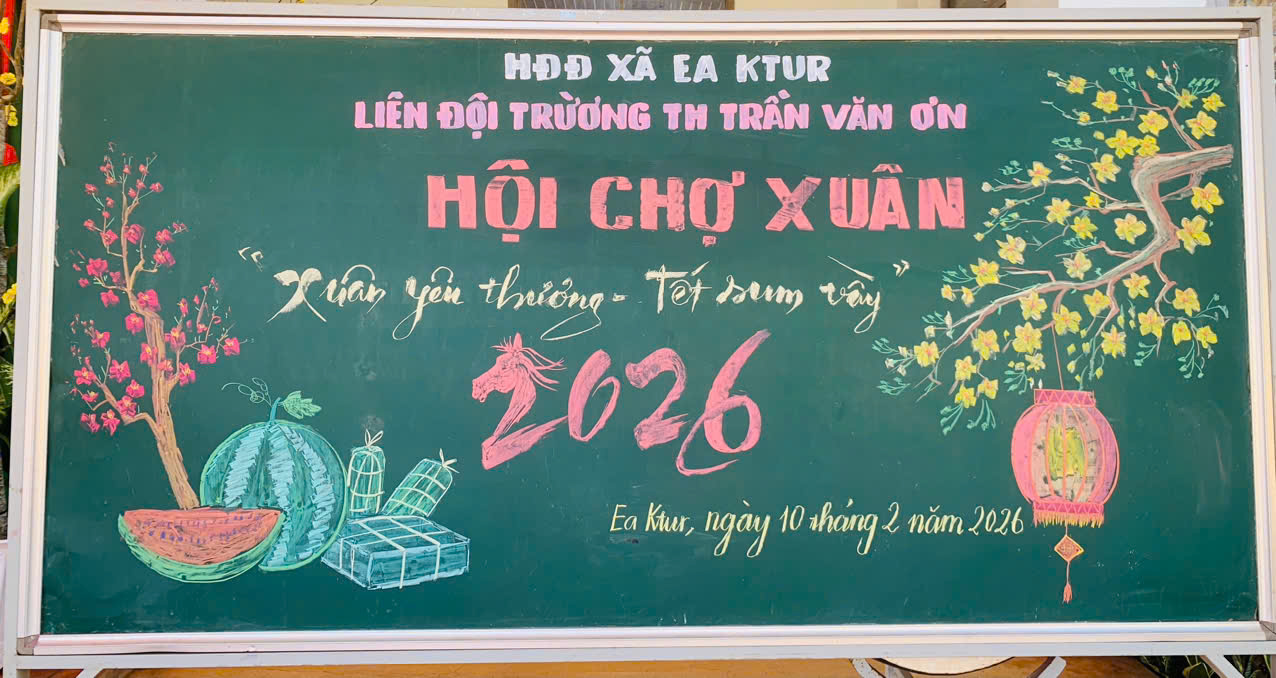 HĐĐ XÃ EA KTUR
LIÊN ĐỘI TRƯỜNG TH TRẦN VĂN ƠN
HỘI CHỢ XUÂN
"Xuân yêu thương - Tết sum vầy"
2026
Ea Ktur, ngày 10 tháng 2 năm 2026